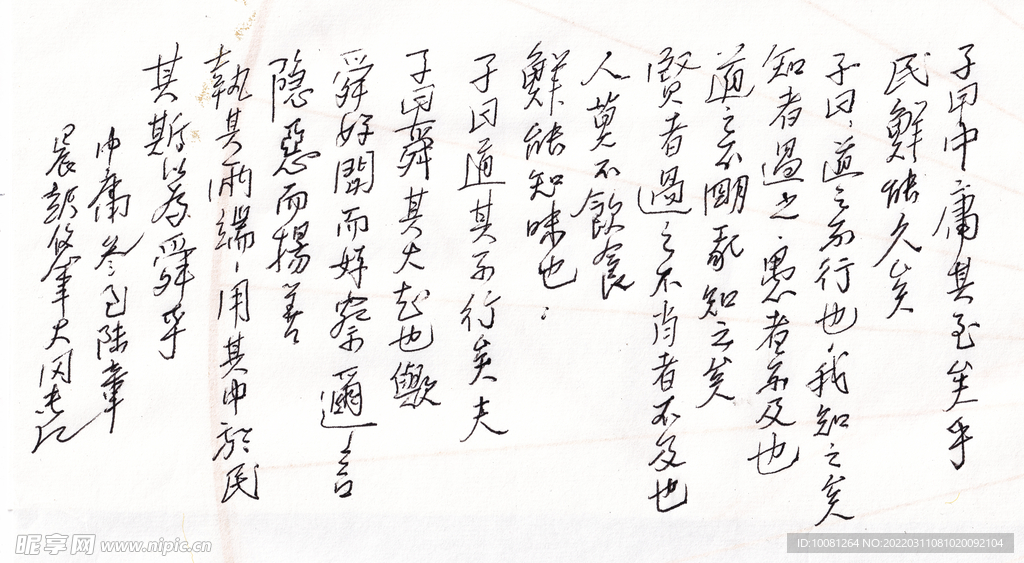 子曰中庸其至矣乎
民鮮能久矣
子曰、道之不行也、我知之矣
知者過之、愚者不及也
道之不明我知之矣
賢者過之不肖者不及也
人莫不飲食
鮮能知味也
子曰道其不行矣夫
子曰舜其大知也歟
舜好問而好察邇言
隱惡而揚善
執其兩端、用其中於民
其斯以為舜乎
中庸叁至陸章
晨
昵享网 www.nipic.cn
ID:10081264 NO:20220311081020092104